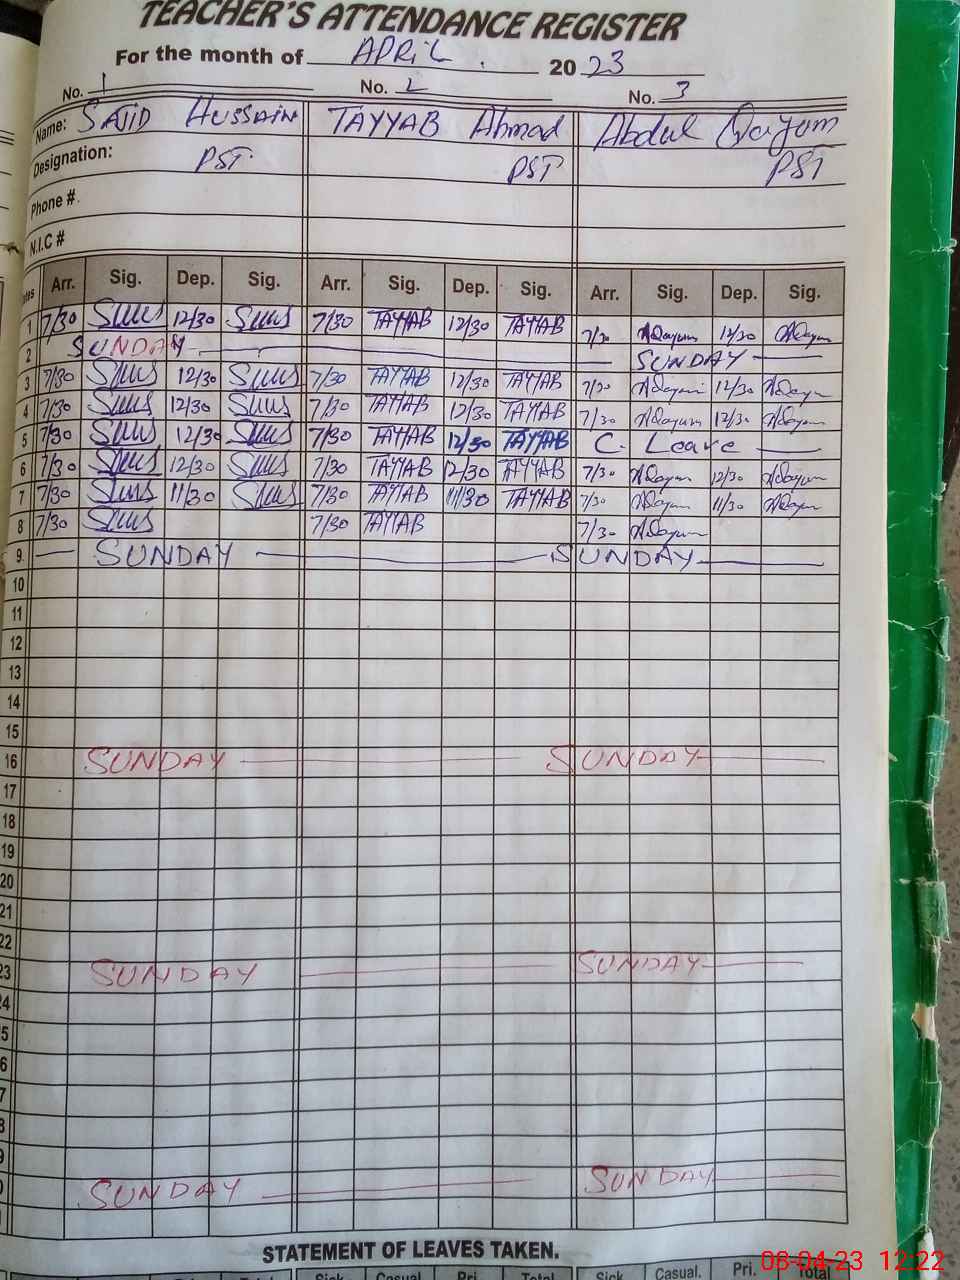 TEACHER'S ATTENDANCE REGISTER
For the month of APRIL. 2023
No. 1 No. 2 No. 3
Name: SAJID HUSSAIN TAYYAB Ahmad Abdul Qayum
Designation: PST. PST PST
Phone #.
N.I.C #
Arr. Sig. Dep. Sig. Arr. Sig. Dep. Sig. Arr. Sig. Dep. Sig.
1 7/30 12/30 7/30 TAYYAB 12/30 TAYYAB 7/30 AQayum 12/30 AQayum
2 SUNDAY SUNDAY
3 7/30 12/30 7/30 TAYYAB 12/30 TAYYAB 7/30 AQayum 12/30 AQayum
4 7/30 12/30 7/30 TAYYAB 12/30 TAYYAB 7/30 AQayum 12/30 AQayum
5 7/30 12/30 7/30 TAYYAB 12/30 TAYYAB C. Leave
6 7/30 12/30 7/30 TAYYAB 12/30 TAYYAB 7/30 AQayum 12/30 AQayum
7 7/30 11/30 7/30 TAYYAB 11/30 TAYYAB 7/30 AQayum 11/30 AQayum
8 7/30 7/30 TAYYAB 7/30 AQayum
9 SUNDAY SUNDAY
10
11
12
13
14
15
16 SUNDAY SUNDAY
17
18
19
20
21
22
23 SUNDAY SUNDAY
24
5
6
7
8
9
0 SUNDAY SUNDAY
STATEMENT OF LEAVES TAKEN.
Total Sick Casual Pri. Total Sick Casual. Pri. Total
08-04-23 12:22